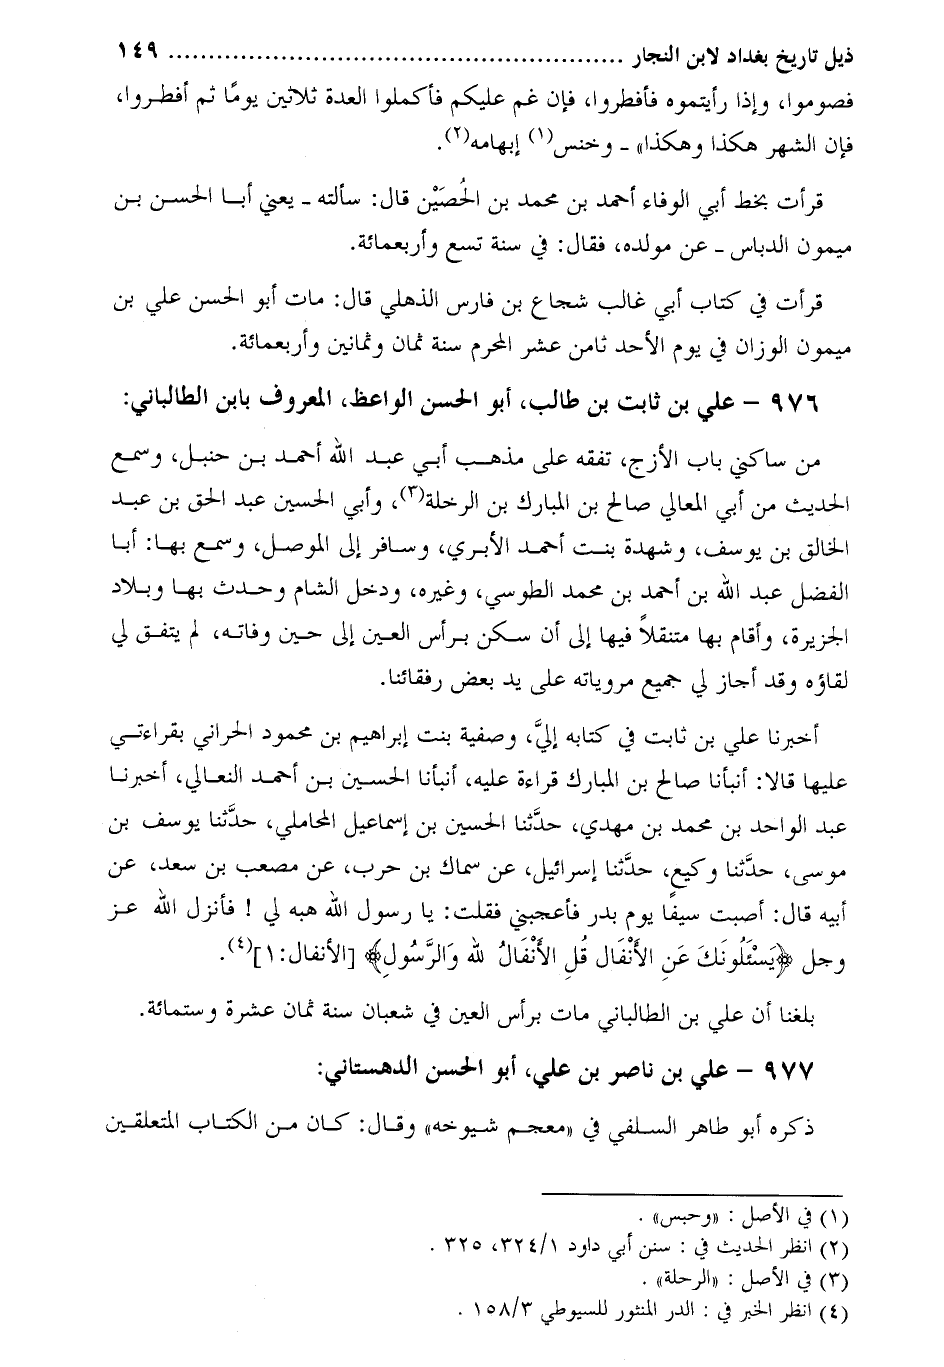 ذيل تاريخ بغداد لابن النجار ........................................................ ١٤٩
فصوموا، وإذا رأيتموه فأفطروا، فإن غم عليكم فأكملوا العدة ثلاثين يومًا ثم أفطروا،
فإن الشهر هكذا وهكذا» ـ وخنس(١) إبهامه(٢).
قرأت بخط أبي الوفاء أحمد بن محمد بن الحُصَيْن قال: سألته ـ يعني أبا الحسن بن
ميمون الدباس ـ عن مولده، فقال: في سنة تسع وأربعمائة.
قرأت في كتاب أبي غالب شجاع بن فارس الذهلي قال: مات أبو الحسن علي بن
ميمون الوزان في يوم الأحد ثامن عشر المحرم سنة ثمان وثمانين وأربعمائة.
٩٧٦ – علي بن ثابت بن طالب، أبو الحسن الواعظ، المعروف بابن الطالباني:
من ساكني باب الأزج، تفقه على مذهب أبي عبد الله أحمد بن حنبل، وسمع
الحديث من أبي المعالي صالح بن المبارك بن الرخلة(٣)، وأبي الحسين عبد الحق بن عبد
الخالق بن يوسف، وشهدة بنت أحمد الأبري، وسافر إلى الموصل، وسمع بها: أبا
الفضل عبد الله بن أحمد بن محمد الطوسي، وغيره، ودخل الشام وحدث بها وبلاد
الجزيرة، وأقام بها متنقلاً فيها إلى أن سكن برأس العين إلى حين وفاته، لم يتفق لي
لقاؤه وقد أجاز لي جميع مروياته على يد بعض رفقائنا.
أخبرنا علي بن ثابت في كتابه إليَّ، وصفية بنت إبراهيم بن محمود الحراني بقراءتي
عليها قالا: أنبأنا صالح بن المبارك قراءة عليه، أنبأنا الحسين بن أحمد النعالي، أخبرنا
عبد الواحد بن محمد بن مهدي، حدَّثنا الحسين بن إسماعيل المحاملي، حدَّثنا يوسف بن
موسى، حدَّثنا وكيع، حدَّثنا إسرائيل، عن سماك بن حرب، عن مصعب بن سعد، عن
أبيه قال: أصبت سيفًا يوم بدر فأعجبني فقلت: يا رسول الله هبه لي ! فأنزل الله عز
وجل ﴿يَسْئَلُونَكَ عَنِ الأَنْفَالِ قُلِ الأَنْفَالُ للهِ وَالرَّسُولِ﴾ [الأنفال:١](٤).
بلغنا أن علي بن الطالباني مات برأس العين في شعبان سنة ثمان عشرة وستمائة.
٩٧٧ – علي بن ناصر بن علي، أبو الحسن الدهستاني:
ذكره أبو طاهر السلفي في «معجم شيوخه» وقال: كان من الكتاب المتعلقين
(١) في الأصل : «وحبس» .
(٢) انظر الحديث في : سنن أبي داود ٣٢٤/١، ٣٢٥ .
(٣) في الأصل : «الرحلة» .
(٤) انظر الخبر في : الدر المنثور للسيوطي ١٥٨/٣ .